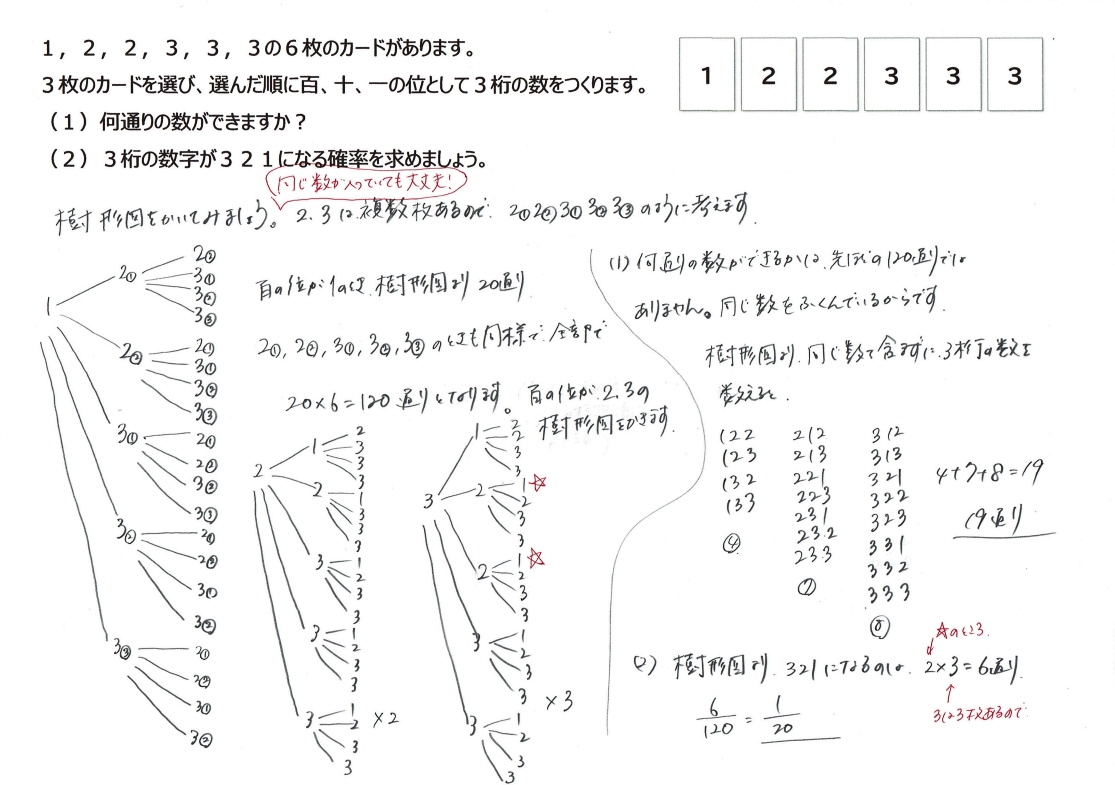 1，2，2，3，3，3の6枚のカードがあります。
3枚のカードを選び、選んだ順に百、十、一の位として3桁の数をつくります。
（1）何通りの数ができますか？
（2）3桁の数字が321になる確率を求めましょう。
1 2 2 3 3 3
同じ数が入っていても大丈夫！
樹形図をかいてみましょう。2.3は複数枚あるので、2①2②3①3②3③のように考えます
1
2① 2② 3① 3② 3③
2② 2① 3① 3② 3③
3① 2① 2② 3② 3③
3② 2① 2② 3① 3③
3③ 2① 2② 3① 3②
百の位が1のとき、樹形図より20通り
2①, 2②, 3①, 3②, 3③のときも同様で、全部で
20×6=120通りとなります。百の位が2.3の
樹形図をかきます。
2
1 2 3 3 3
2 1 3 3 3
3 1 2 3 3
3 1 2 3 3
3 1 2 3 3
×2
3
1 2 2 3 3
2 1☆ 2 3 3
2 1☆ 2 3 3
3 1 2 3 3
3 1 2 3
×3
(1)何通りの数ができるかは、先ほどの120通りでは
ありません。同じ数をふくんでいるからです。
樹形図より、同じ数で含まずに、3桁の数を
数えると、
122 212 312
123 213 313
132 221 321
133 223 322
231 323
④ 232 331
233 332
⑦ 333
⑧
4+7+8=19
19通り
(2) 樹形図より、321になるのは、2×3=6通り
☆のところ
3は3枚あるので
6/120 = 1/20